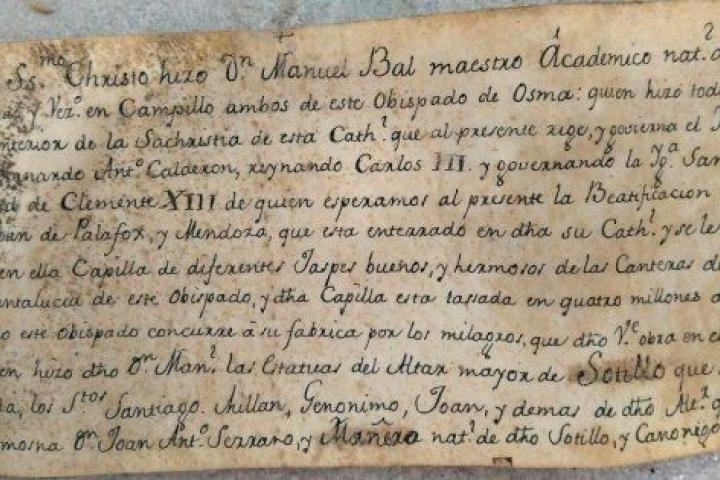 Ss.mo Christo hizo D.n Manuel Bal maestro Academico nat.l
y Vez.o en Campillo ambos de este Obispado de Osma: quien hizo
interior de la Sachristia de esta Cath.l que al presente rige, y govierna el
Ant.o Calderon, reynando Carlos III. y governando la Yg.a San
de Clemente XIII. de quien esperamos al presente la Beatificacion
de Palafox, y Mendoza, que esta enterrado en dha su Cath.l y se le
en ella Capilla de diferentes Jaspes buenos, y hermosos de las Canteras
de este Obispado, y dha Capilla esta tassada en quatro millones
este obispado concurre à su fabrica por los milagros, que dho V.e obra en
hizo dho D.n Man.l las Estatuas del Altar mayor de Sotillo que
los S.tos Santiago. Millan, Geronimo, Joan, y demas de dho
D.n Joan Ant.o Serrano, y nat.l de dho Sotillo, y Canonigo